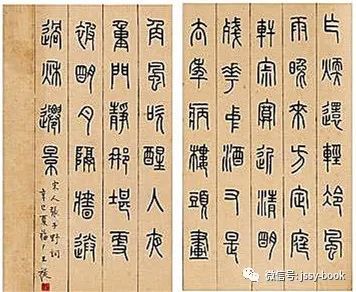 乍煖還輕冷風
雨晚來方定庭
軒寂寞近清明
殘花中酒又是
去年病樓頭畫
角風吹醒入夜
重門靜那堪更
被明月隔牆送
過秋遷景
宋人張子野詞
辛巳夏福厂王禔
微信号: jssy-book